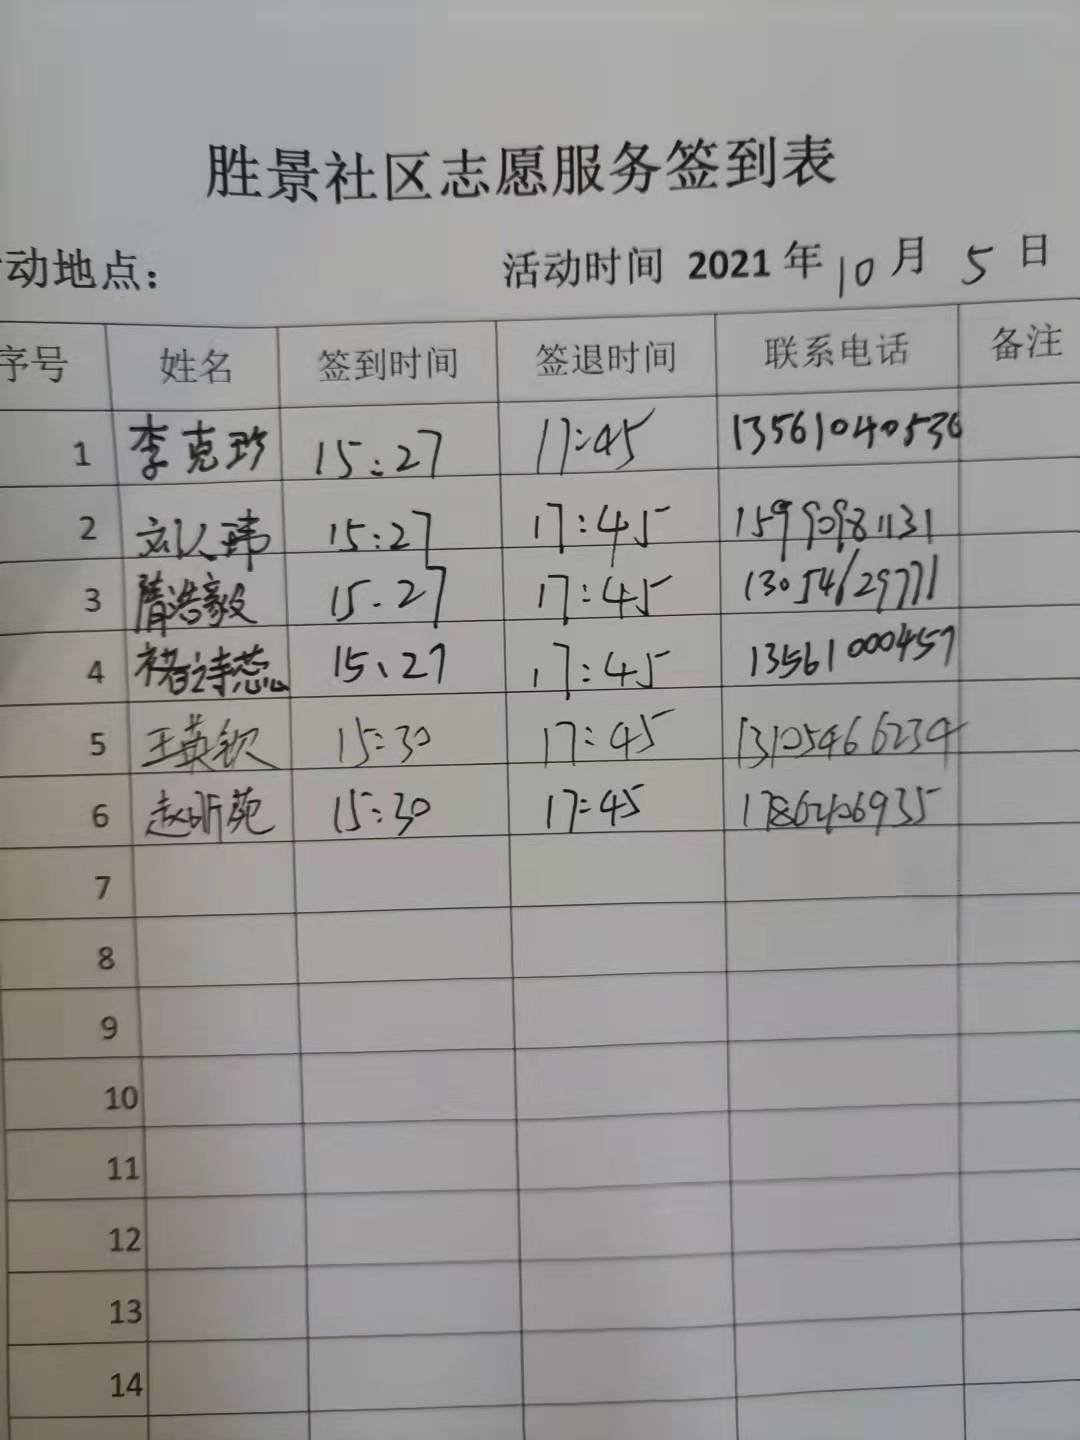 胜景社区志愿服务签到表
动地点： 活动时间 2021 年 10 月 5 日
序号 姓名 签到时间 签退时间 联系电话 备注
1 李克珍 15:27 17:45 13561040530
2 刘人玮 15:27 17:45 15990981131
3 隋浩毅 15.27 17:45 13054629771
4 褚诗蕊 15、27 17:45 13561000457
5 王英钦 15:30 17:45 13105466234
6 赵昕苑 15:30 17:45
7
8
9
10
11
12
13
14